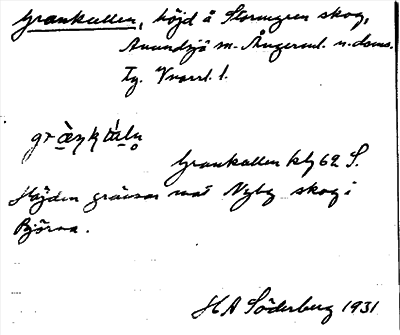 Grankullen, höjd å Storugren skog,
Anundsjö m. Ångerml. n. doms.
Tg. Vvarrl. 1.
Grankullen kbg 62 S.
Höjden gränsar mot Nyby skog i
Björna.
H A Söderberg 1931